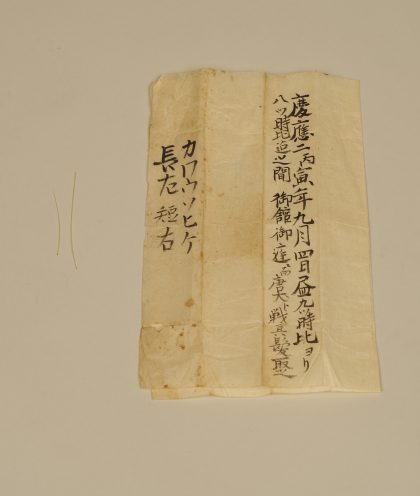 慶應二丙寅年九月四日昼九ツ時比ヨリ
八ツ時比迄之間 御館御庭ニ而唐犬ト戦其髭取之
カワウソヒゲ
長左 短右